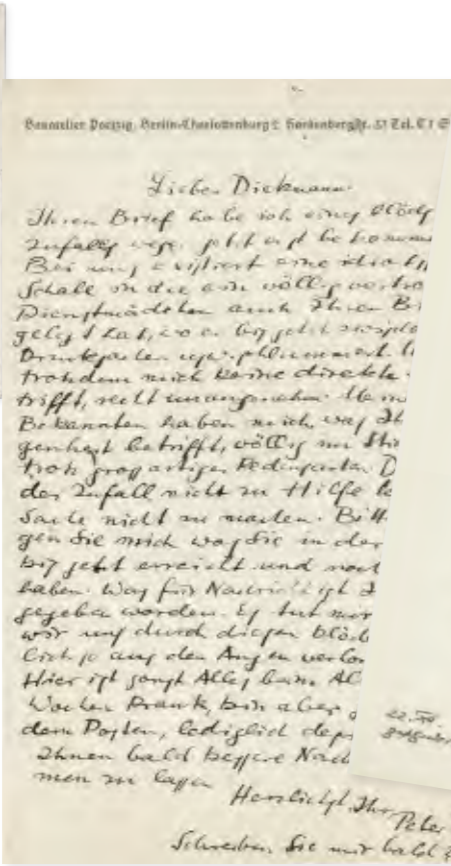 Bauatelier Poelzig, Berlin-Charlottenburg 2 Hardenbergstr. 33 Tel. C 1 S
Lieber Dieckmann
Ihren Brief habe ich eines blöds
Zufalls wegen jetzt erst bekommen
Bei uns existiert eine idiot
Schale in die ein völlig
Dienstmädchen auch Ihren Br
gelegt hat, wo er bis jetzt
Drucksachen usw. schlummert.
trotzdem mich keine direkte
trifft, recht unangenehm. Mein
Bekannten haben mich, was Ih
genheit betrifft, völlig im Sti
trotz grossartiger Redensarten. D
der Zufall nicht zu Hilfe
Sache nicht zu machen. Bitt
gen Sie mich was Sie in der
bis jetzt erreicht und noch
haben. Was für Nachricht ist I
gegeben worden. Es tut mir
wir uns durch diesen blöd
lich so aus den Augen verlo
Hier ist sonst Alles beim Al
Wochen krank, bin aber
dem Posten, lediglich dep
Ihnen bald bessere Nach
men zu lassen
Herzlichst Ihr Peter
Schreiben Sie mir bald